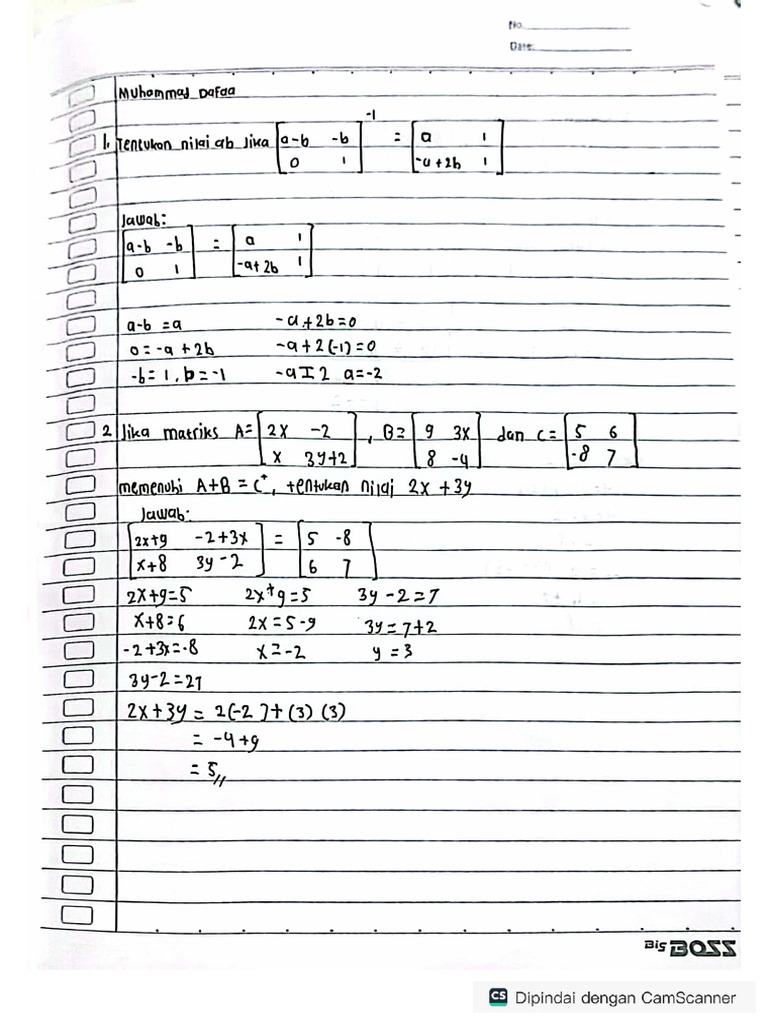 No.
Date:
Muhammad Dafaa
1. Tentukan nilai ab Jika [a-b -b; 0 1]^-1 = [a 1; -a+2b 1]
Jawab:
[a-b -b; 0 1] = [a 1; -a+2b 1]
a-b = a -a+2b=0
0=-a+2b -a+2(-1)=0
-b=1, b=-1 -a=2 a=-2
2 Jika matriks A=[2x -2; x 3y+2], B=[9 3x; 8 -4] dan C=[5 6; -8 7]
memenuhi A+B = C^t, tentukan nilai 2x+3y
Jawab:
[2x+9 -2+3x; x+8 3y-2] = [5 -8; 6 7]
2x+9=5 2x+9=5 3y-2=7
x+8=6 2x=5-9 3y=7+2
-2+3x=-8 x=-2 y=3
3y-2=27
2x+3y = 2(-2)+(3)(3)
= -4+9
= 5//
Big BOSS
CS Dipindai dengan CamScanner